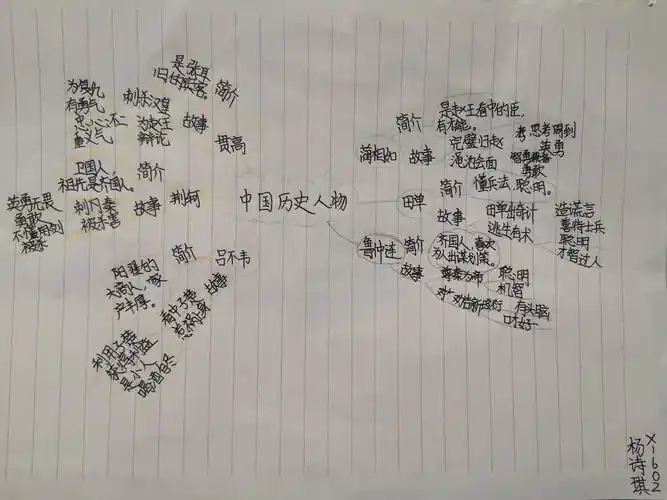 中国历史人物
蔺相如
简介
是赵王看中的臣,
有才能。
故事
完璧归赵
渑池会面
思考周到
英勇
勇敢
田单
简介
懂兵法、聪明。
故事
田单出奇计
逃生有术
造谎言
善待士兵
聪明
才智过人
鲁仲连
简介
齐国人、喜欢
为人出谋划策。
故事
尊秦为帝
聪明
机智
有头脑
口才好
贯高
简介
是张耳
旧住宾客。
故事
刺杀汉皇
为赵王
辩论
为复仇
有勇气
忠心不二
重义气
荆轲
简介
卫国人,
祖先是齐国人。
故事
刺杀秦
被杀害
英勇无畏
勇敢
不懂用剑
被杀
吕不韦
简介
阳翟的
大商人,家
户丰厚。
故事
看中子楚
惹祸身
利用子楚
小人
喝酒自尽
X1602
杨诗琪